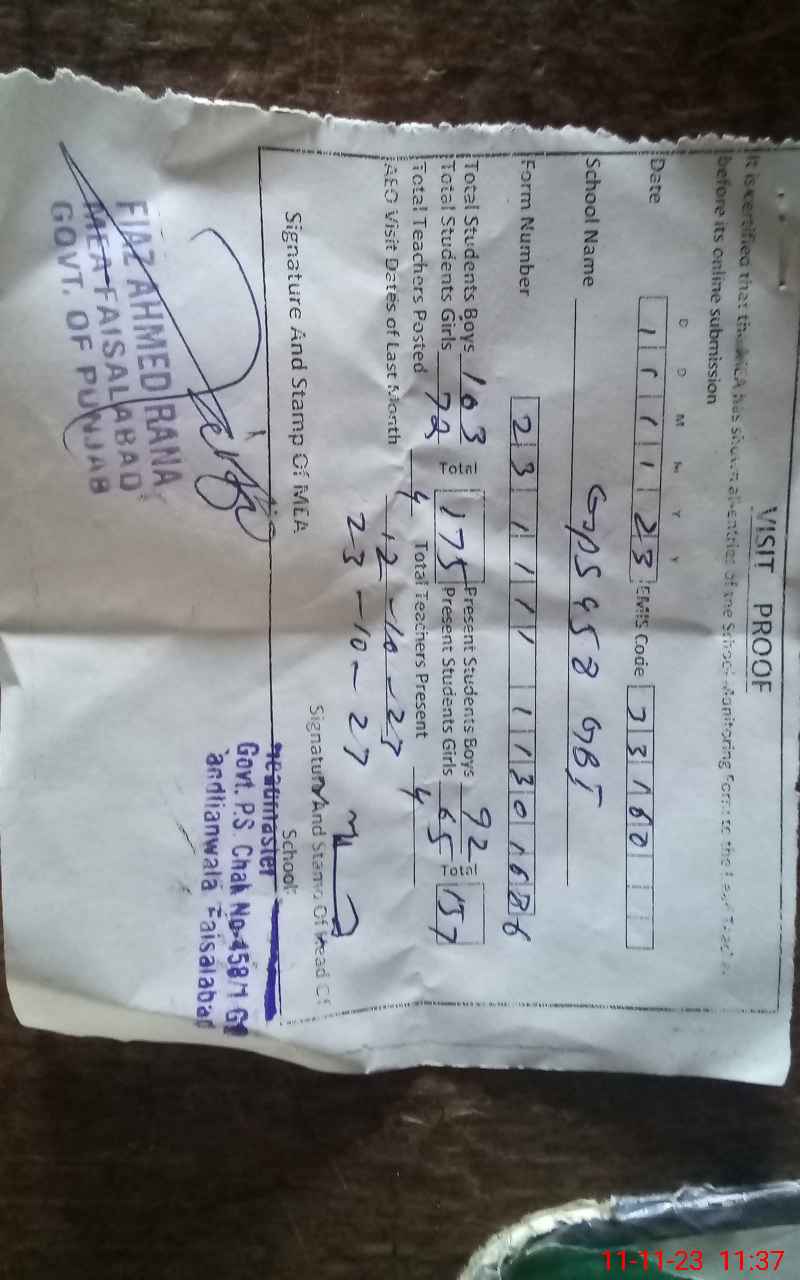 VISIT PROOF
It is certified that the MEA has shown all entries of the School Monitoring Form to the Head Teacher
before its online submission
D D M M Y Y
Date 1 1 1 1 2 3 EMIS Code 3 3 1 60
School Name GPS 458 GB I
Form Number 2 3 1 1 1 1 1 1 3 0 1 6 8 6
Total Students Boys 103 Present Students Boys 92
Total Students Girls 72 175 Present Students Girls 65 157
Total Teachers Posted 4 Total Teachers Present 4
AEO Visit Dates of Last Month 12-10-23
23-10-23
Signature And Stamp Of MEA Signature And Stamp Of Head Of
School
FIAZ AHMED RANA
MEA FAISALABAD
GOVT. OF PUNJAB
Headmaster
Govt. P.S. Chak No.458/1 GB
andlianwala Faisalabad
11-11-23 11:37